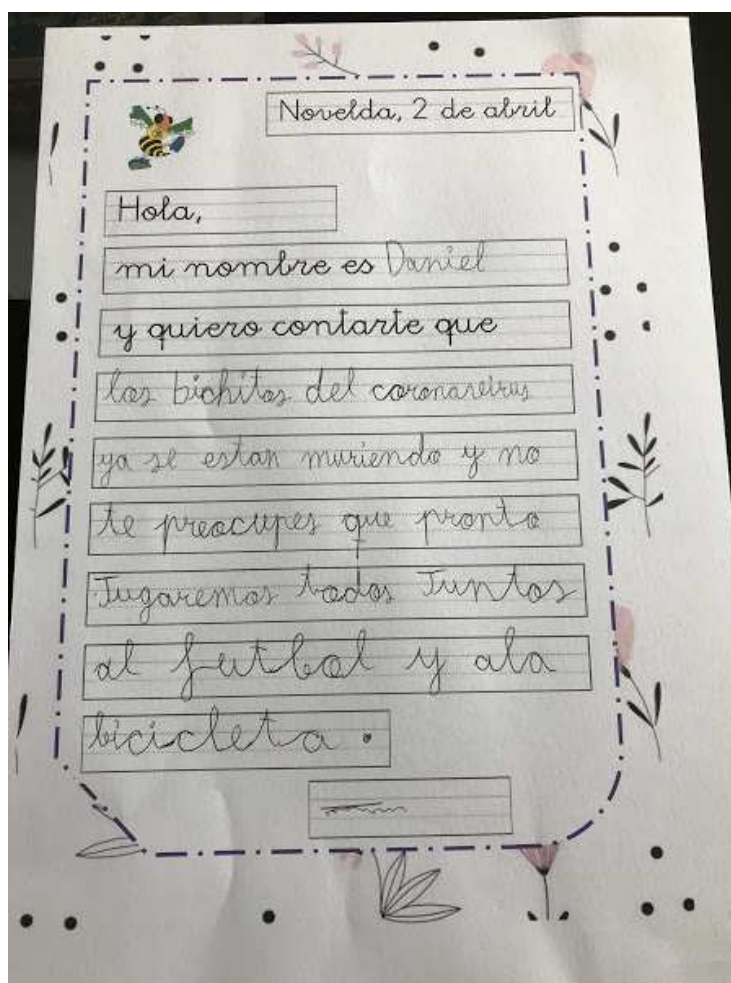 Novelda, 2 de abril
Hola,
mi nombre es Daniel
y quiero contarte que
los bichitos del coronareirus
ya se estan muriendo y no
te preocupes que pronto
Jugaremos todos Juntos
al futbol y ala
bicicleta.